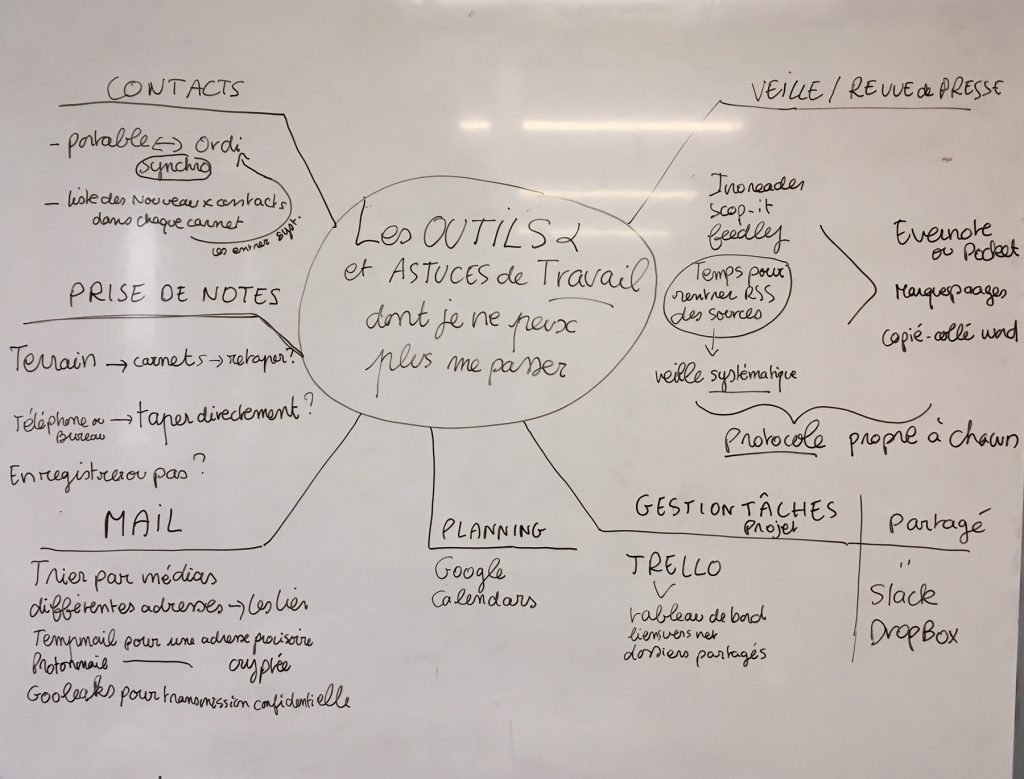 Les OUTILS
et ASTUCES de Travail
dont je ne peux
plus me passer
CONTACTS
- portable <-> Ordi
synchro
- liste des Nouveaux contacts
dans chaque carnet
les entrer syst.
PRISE DE NOTES
Terrain → carnets → retaper?
Téléphone ou → taper directement?
Bureau
Enregistrer ou pas?
MAIL
Trier par médias
différentes adresses → les lier
Tempmail pour une adresse provisoire
Protonmail — cryptée
Gooleaks pour transmission confidentielle
PLANNING
Google
Calendars
GESTION TÂCHES
Projet
TRELLO
tableau de bord
liens vers net
dossiers partagés
Partagé
"
Slack
DropBox
VEILLE / REVUE de PRESSE
Inoreader
Scop-it
feedley
Temps pour
rentrer RSS
des sources
veille systématique
Evernote
ou Pocket
Marquepages
Copié-collé word
Protocole propre à chacun